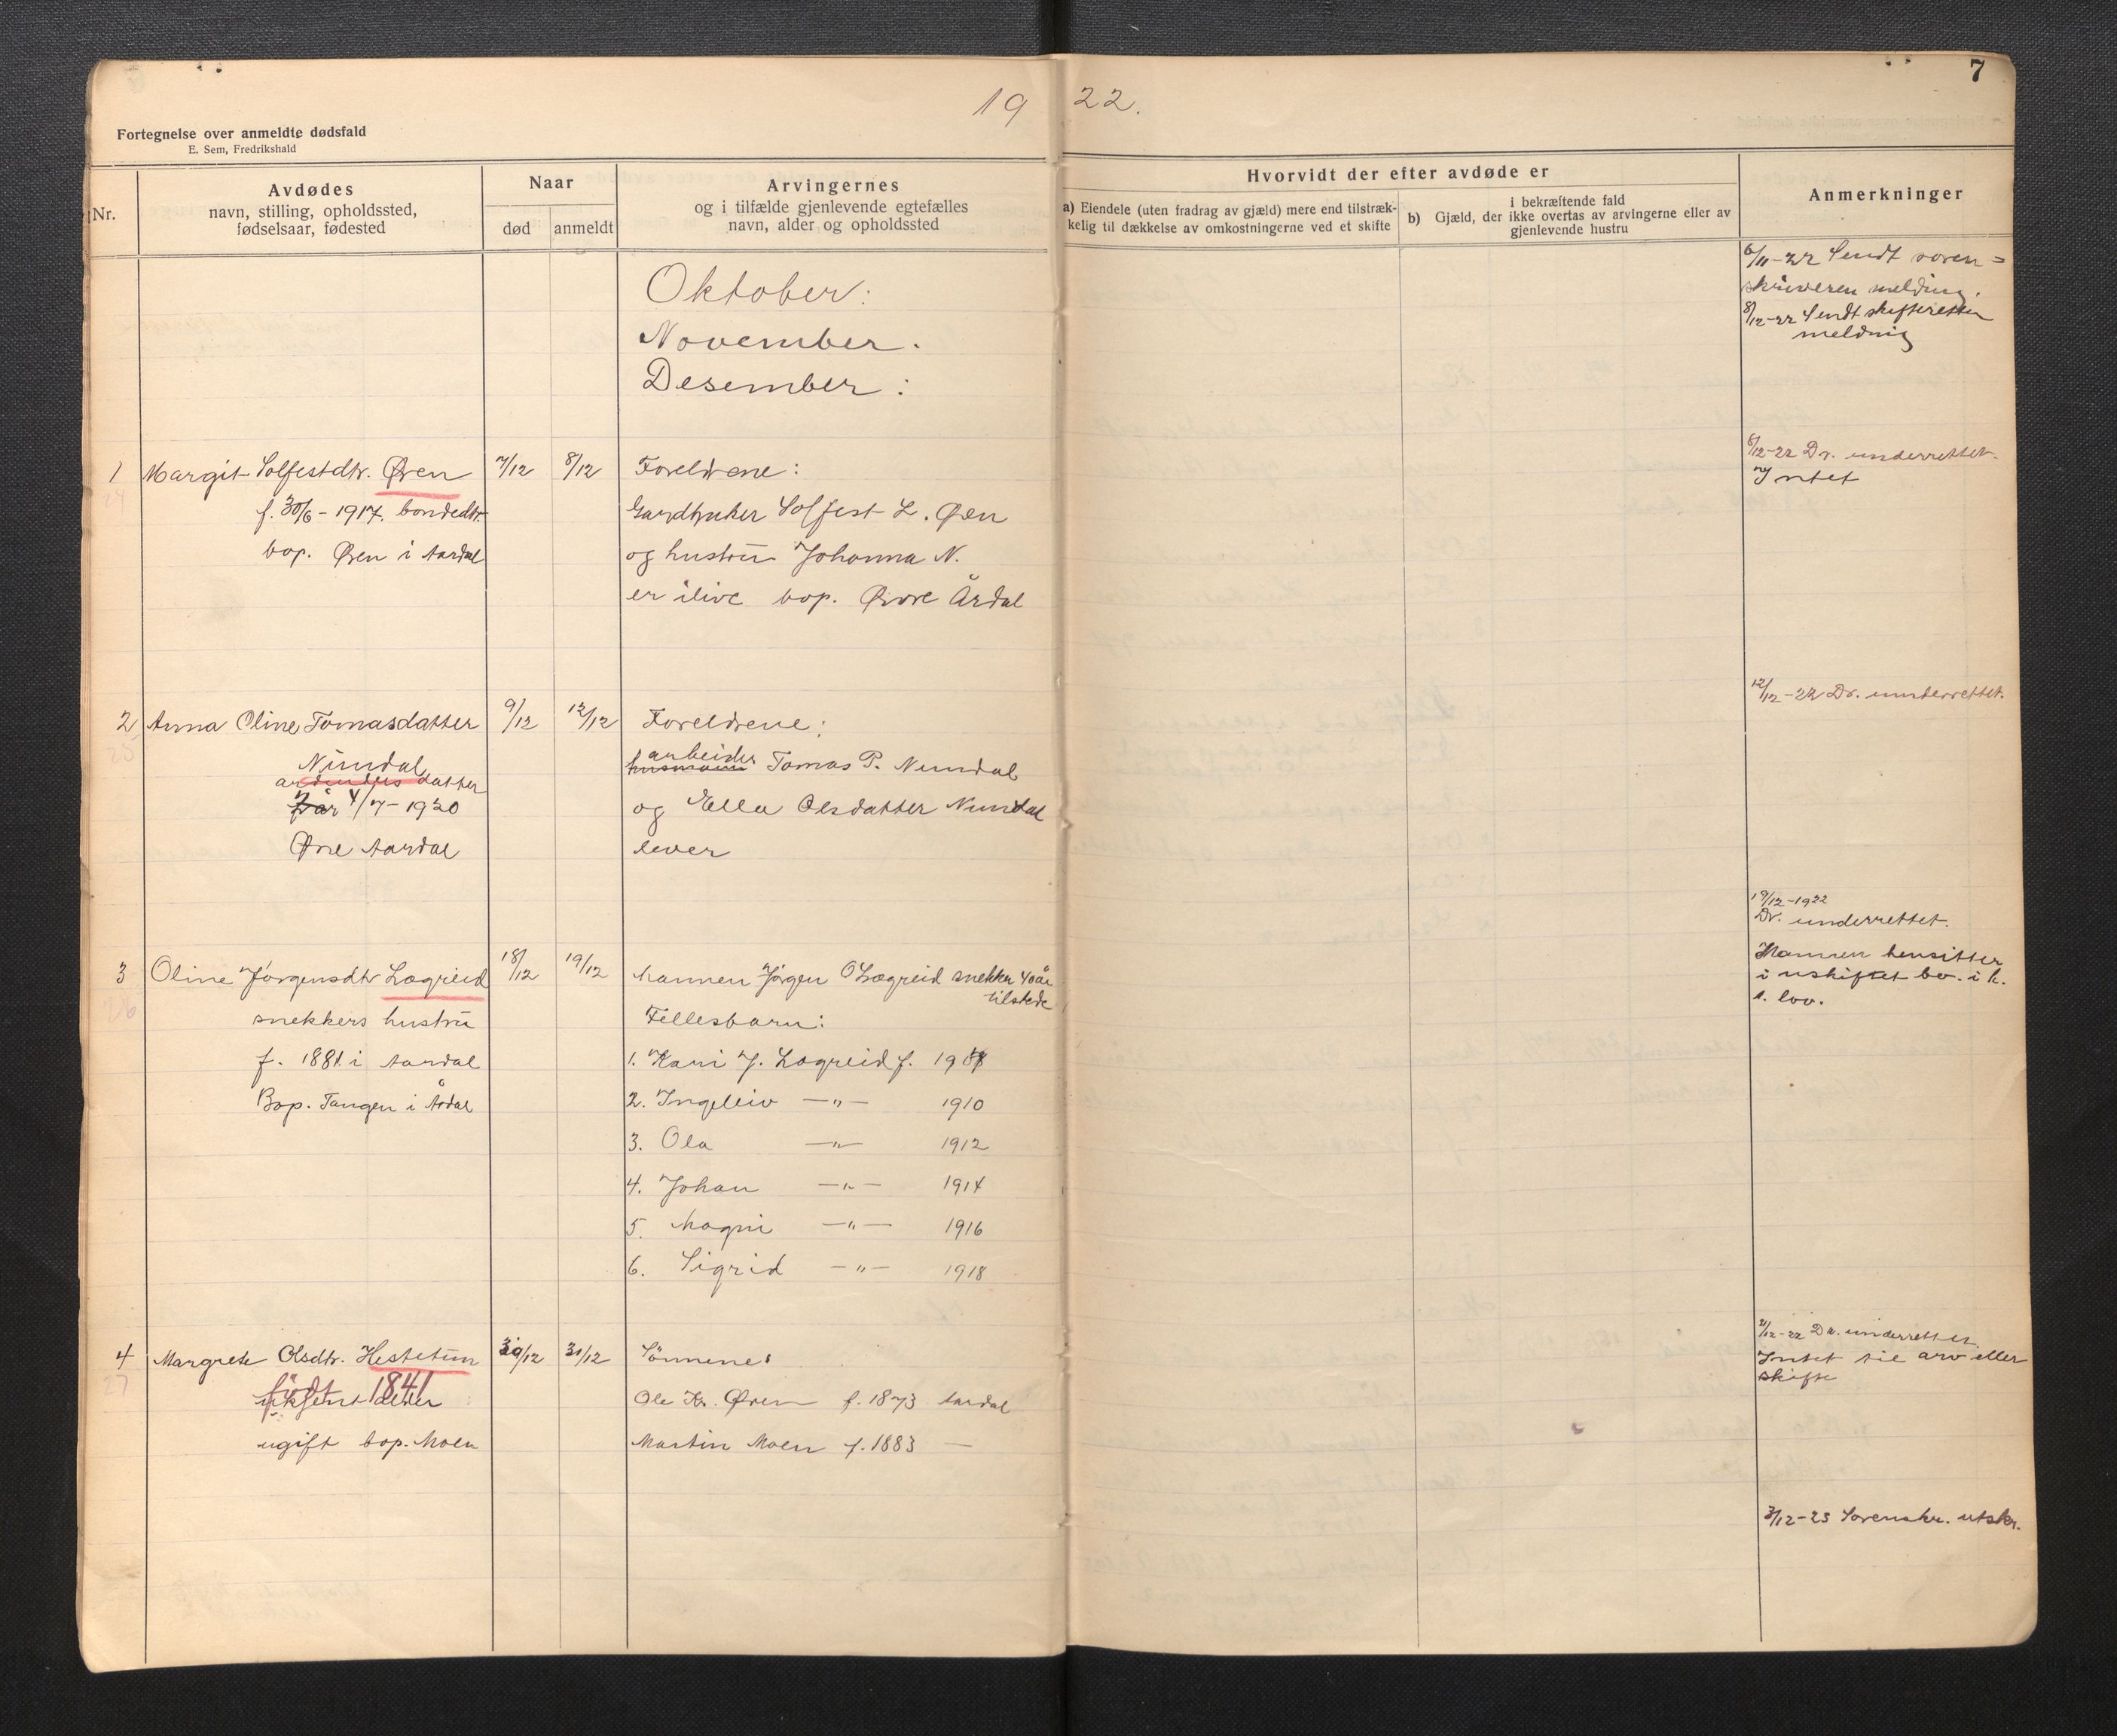 7
19 22.
Fortegnelse over anmeldte dødsfald
E. Sem, Fredrikshald
Nr.
Avdødes
navn, stilling, opholdssted,
fødselsaar, fødested
Naar
død
anmeldt
Arvingernes
og i tilfælde gjenlevende egtefælles
navn, alder og opholdssted
Hvorvidt der efter avdøde er
a) Eiendele (uten fradrag av gjæld) mere end tilstræk-
kelig til dækkelse av omkostningerne ved et skifte
b) Gjæld, der
i bekræftende fald
ikke overtas av arvingerne eller av
gjenlevende hustru
Anmerkninger
Oktober:
November.
Desember:
6/11-22 Sendt soren=
skriveren melding.
8/12-22 Sendt skifteretten
melding
1 Margit Solfestdtr. Øren 7/12 8/12 Foreldrene:
24
f. 30/6-1917. bondedtr.
bop. Øren i Aardal
Gardbruker Solfest L. Øren
og hustru Johanna N.
er ilive bop. Øvre Årdal
8/12-22 Dr. underrettet.
Intet
2 Anna Oline Tomasdatter 9/12 12/12 Foreldrene:
25
Nundal
arbeiders datter
2 år 4/7-1920
Øvre Aardal
arbeider
husmann Tomas P. Nundal
og Ella Olsdatter Nundal
lever
12/12-22 Dr. underrettet.
3 Oline Jørgensdtr Lægreid 18/12 19/12 Mannen Jørgen O Lægreid snekker 40 år
tilstede
26
snekkers hustru
f. 1881 i Aardal
Bop. Tangen i Årdal
Fellesbarn:
1. Kari J. Lægreid f. 1908
2. Ingeleiv —"— 1910
3. Ola —"— 1912
4. Johan —"— 1914
5. Magni —"— 1916
6. Sigrid —"— 1918
19/12-1922
Dr. underrettet.
Mannen hensitter
i uskiftet bo. i h.
t. lov.
4 Margrete Olsdtr. Hestetun 30/12 31/12 Sønnene:
27
født 1841
ugift bop. Moen
Ole Kr. Øren f. 1873 Aardal
Martin Moen f. 1883 —
/12-22 Dr. underrettet
Intet til arv eller
skifte
3/12-23 Sorenskr. utskr.